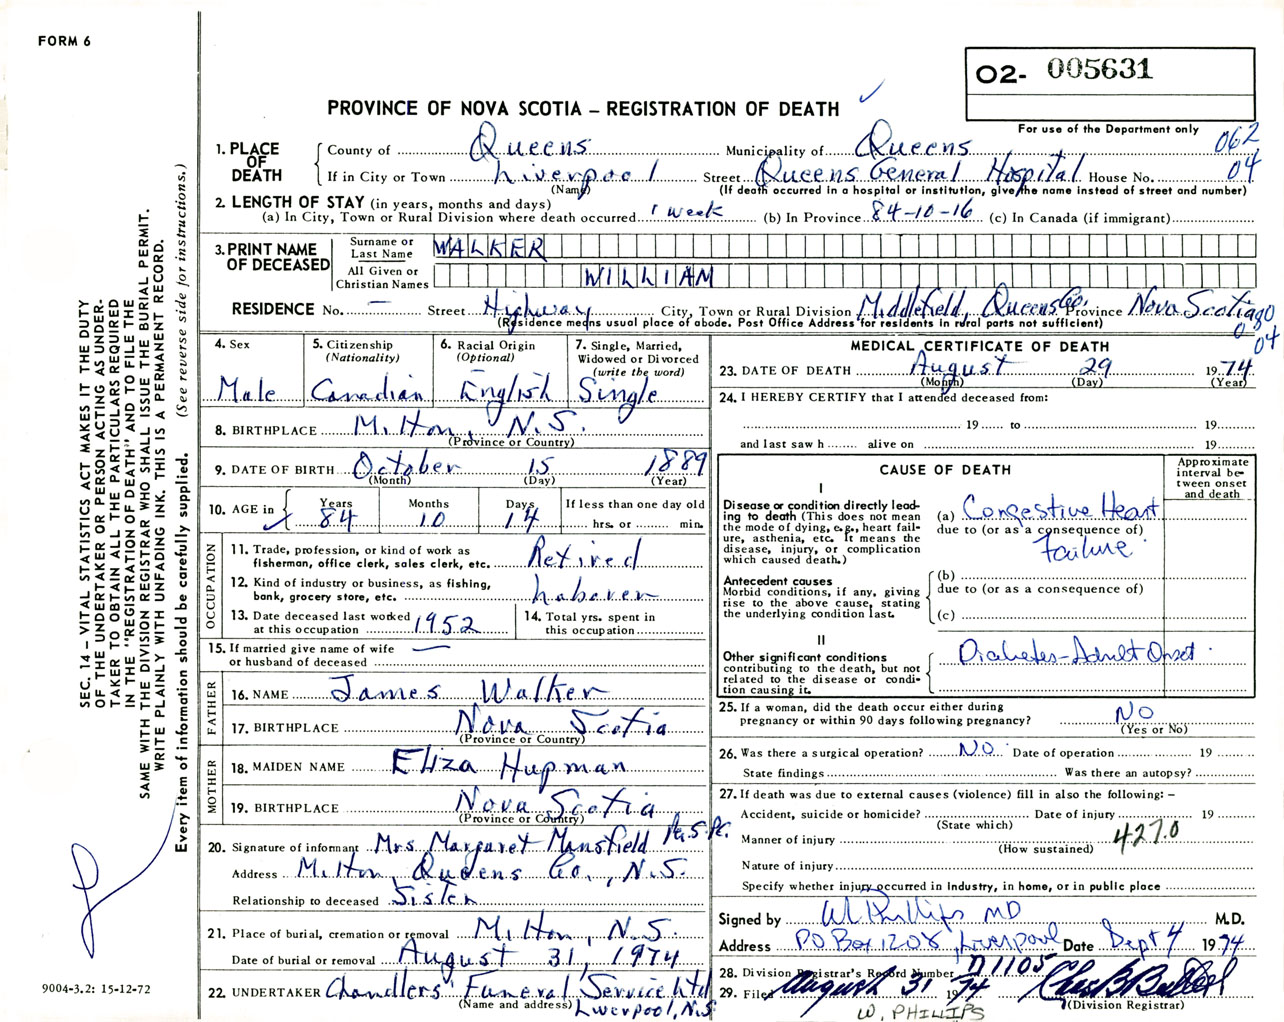 FORM 6
O2- 005631
PROVINCE OF NOVA SCOTIA – REGISTRATION OF DEATH
For use of the Department only
062
04
1. PLACE OF DEATH
County of Queens Municipality of Queens
If in City or Town Liverpool Street Queens General Hospital House No.
(Name) (If death occurred in a hospital or institution, give the name instead of street and number)
2. LENGTH OF STAY (in years, months and days)
(a) In City, Town or Rural Division where death occurred 1 week (b) In Province 84-10-16 (c) In Canada (if immigrant)
3. PRINT NAME OF DECEASED
Surname or Last Name WALKER
All Given or Christian Names WILLIAM
RESIDENCE No. — Street Highway City, Town or Rural Division Middlefield, Queens Co. Province Nova Scotia
(Residence means usual place of abode. Post Office Address for residents in rural parts not sufficient)
04
4. Sex Male
5. Citizenship (Nationality) Canadian
6. Racial Origin (Optional) English
7. Single, Married, Widowed or Divorced (write the word) Single
8. BIRTHPLACE Milton, N.S.
(Province or Country)
9. DATE OF BIRTH October 15 1889
(Month) (Day) (Year)
10. AGE in Years 84 Months 10 Days 14 If less than one day old hrs. or min.
OCCUPATION
11. Trade, profession, or kind of work as fisherman, office clerk, sales clerk, etc. Retired
12. Kind of industry or business, as fishing, bank, grocery store, etc. laborer
13. Date deceased last worked at this occupation 1952
14. Total yrs. spent in this occupation
15. If married give name of wife or husband of deceased —
FATHER
16. NAME James Walker
17. BIRTHPLACE Nova Scotia
(Province or Country)
MOTHER
18. MAIDEN NAME Eliza Hupman
19. BIRTHPLACE Nova Scotia
(Province or Country)
20. Signature of informant Mrs Margaret Mansfield
Address Milton, Queens Co., N.S.
Relationship to deceased Sister
21. Place of burial, cremation or removal Milton, N.S.
Date of burial or removal August 31, 1974
22. UNDERTAKER Chandlers' Funeral Service Ltd
(Name and address) Liverpool, N.S
MEDICAL CERTIFICATE OF DEATH
23. DATE OF DEATH August 29 1974
(Month) (Day) (Year)
24. I HEREBY CERTIFY that I attended deceased from:
19 to 19
and last saw h alive on 19
CAUSE OF DEATH
Approximate interval between onset and death
I
Disease or condition directly leading to death (This does not mean the mode of dying, e.g., heart failure, asthenia, etc. It means the disease, injury, or complication which caused death.)
(a) Congestive Heart
due to (or as a consequence of)
Failure
Antecedent causes
Morbid conditions, if any, giving rise to the above cause, stating the underlying condition last.
(b)
due to (or as a consequence of)
(c)
II
Other significant conditions contributing to the death, but not related to the disease or condition causing it.
Diabetes-Adult Onset.
25. If a woman, did the death occur either during pregnancy or within 90 days following pregnancy? NO
(Yes or No)
26. Was there a surgical operation? NO Date of operation 19
State findings Was there an autopsy?
27. If death was due to external causes (violence) fill in also the following: –
Accident, suicide or homicide? Date of injury 19
(State which)
Manner of injury 427.0
(How sustained)
Nature of injury
Specify whether injury occurred in Industry, in home, or in public place
Signed by W Phillips MD M.D.
Address PO Box 1208, Liverpool Date Sept 4 1974
28. Division Registrar's Record Number D1105
29. Filed August 31 1974
(Division Registrar)
W. PHILLIPS
SEC. 14 – VITAL STATISTICS ACT MAKES IT THE DUTY
OF THE UNDERTAKER OR PERSON ACTING AS UNDER-
TAKER TO OBTAIN ALL THE PARTICULARS REQUIRED
IN THE "REGISTRATION OF DEATH" AND TO FILE THE
SAME WITH THE DIVISION REGISTRAR WHO SHALL ISSUE THE BURIAL PERMIT.
WRITE PLAINLY WITH UNFADING INK. THIS IS A PERMANENT RECORD.
Every item of information should be carefully supplied. (See reverse side for instructions.)
9004-3.2: 15-12-72